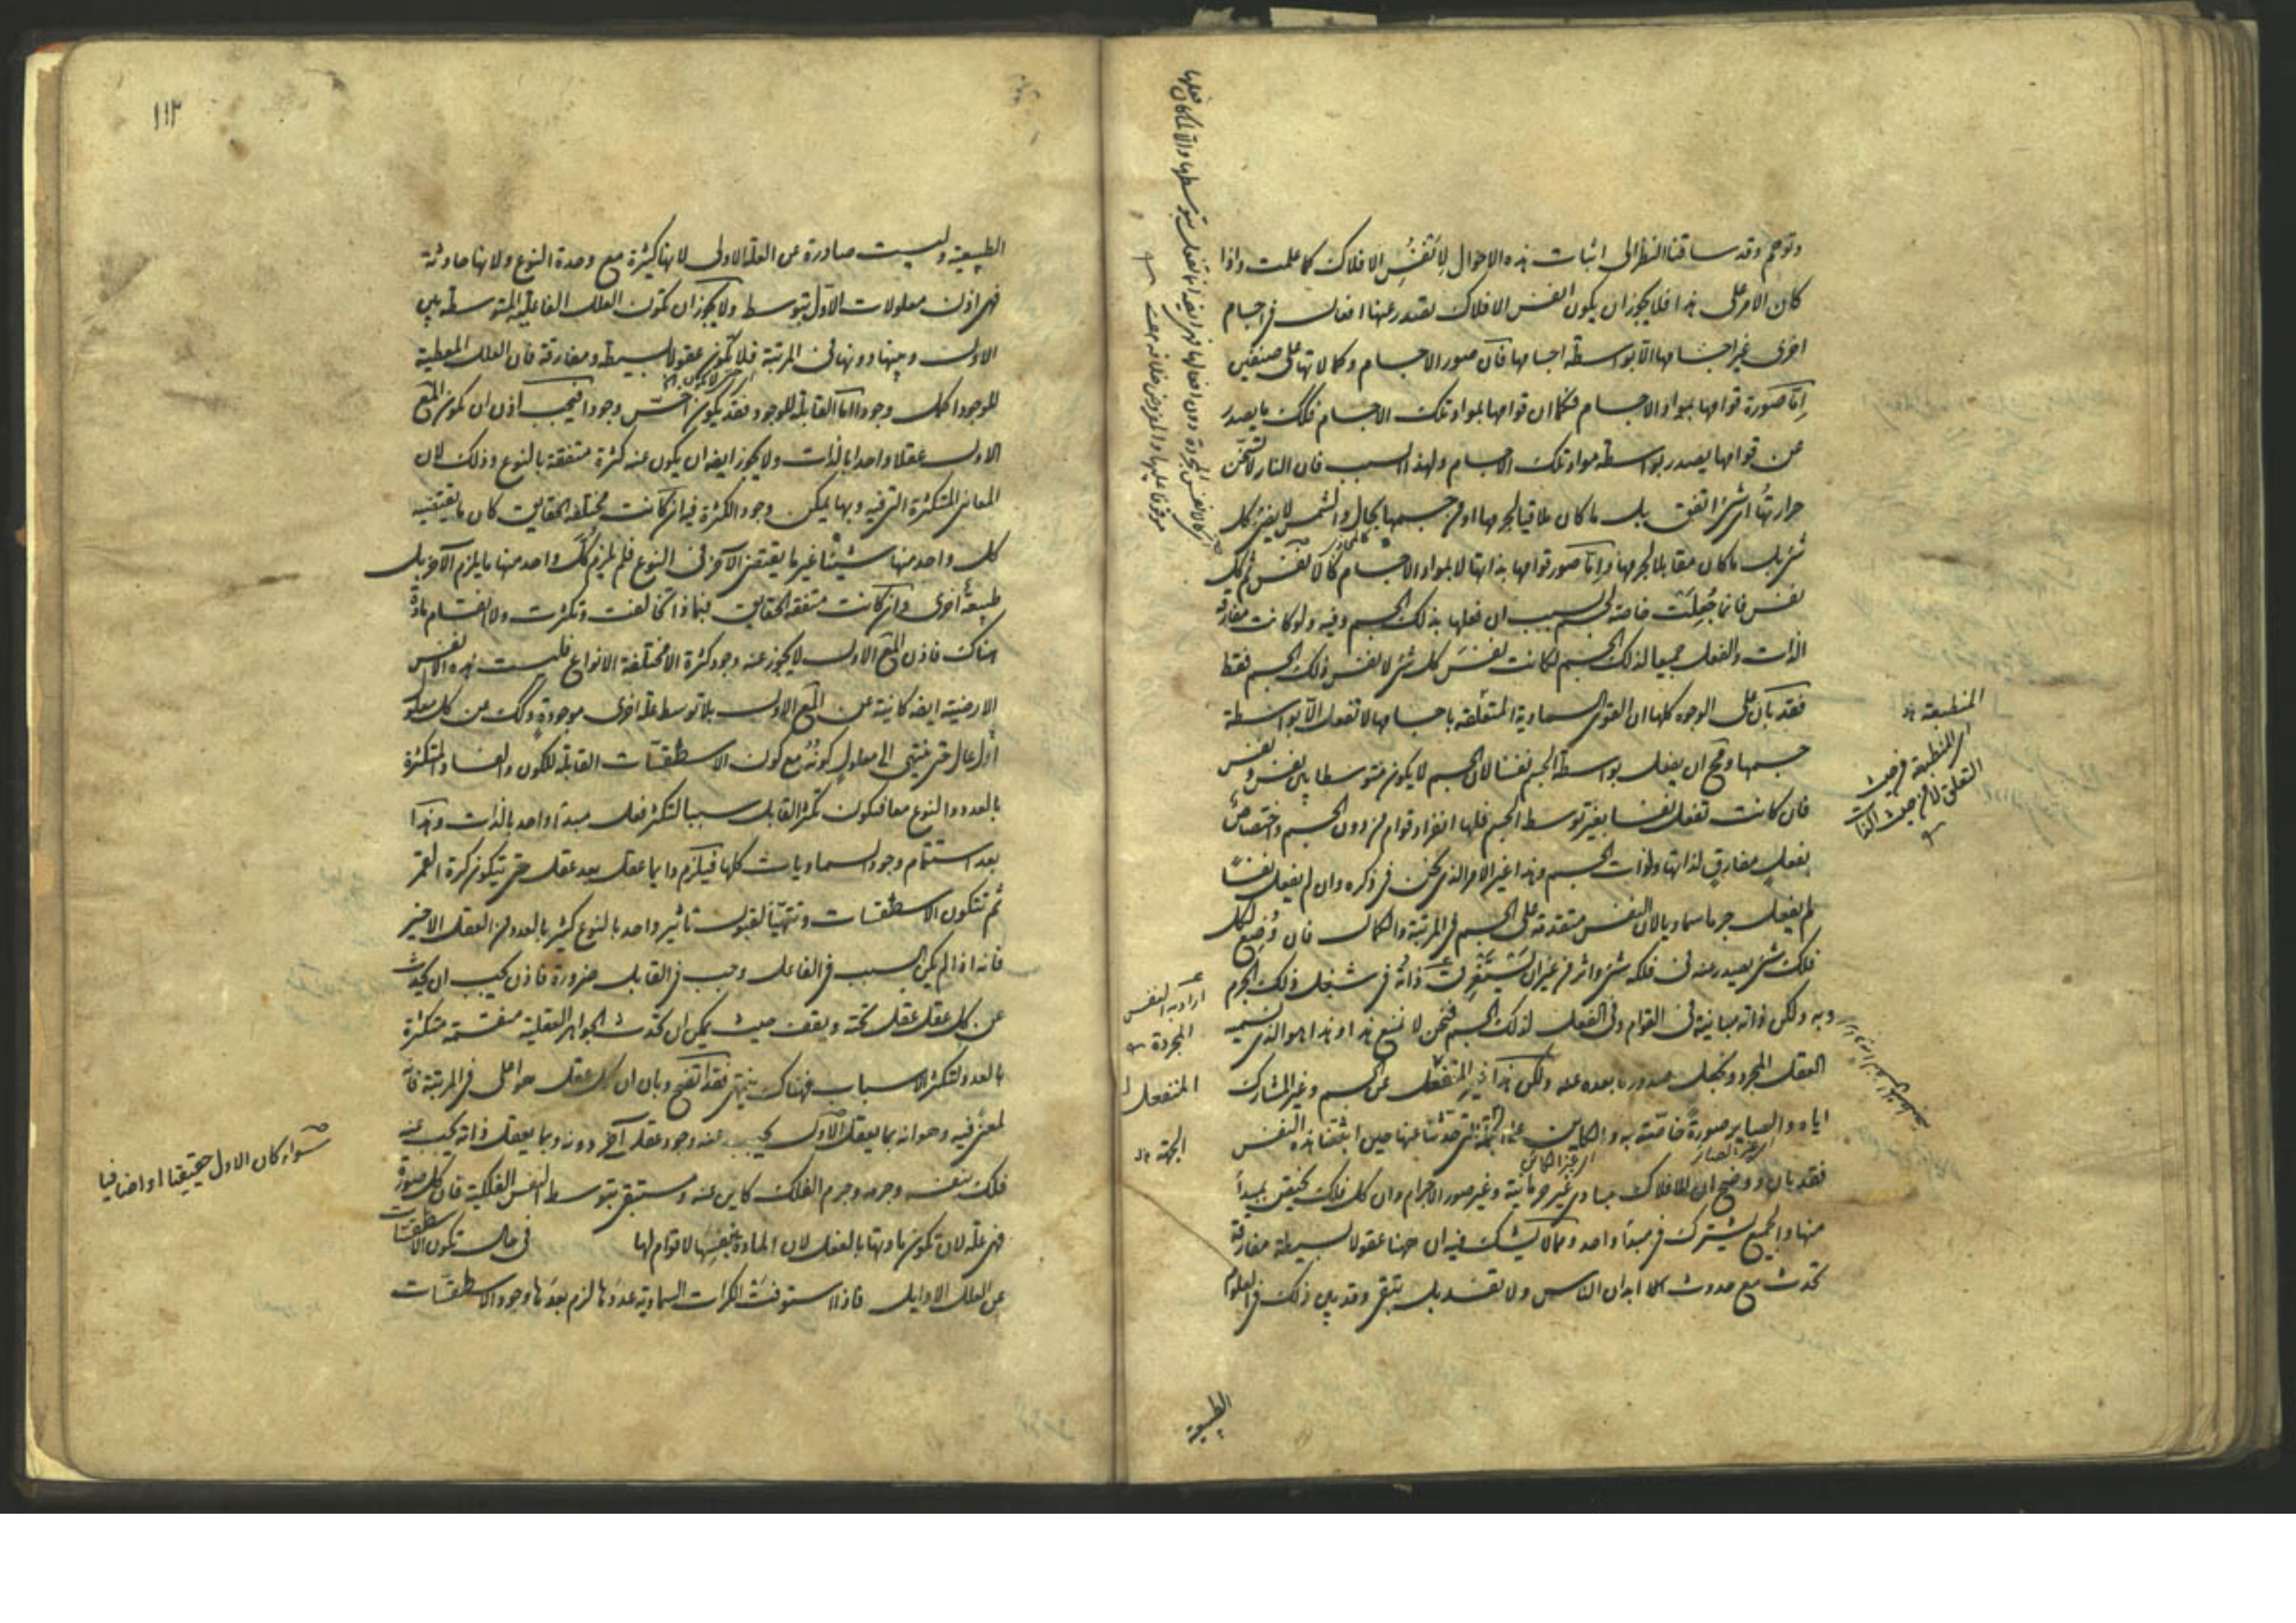 وتوهم وقد ساقنا النظر الى اثبات هذه الاحوال لانفس الافلاك كما علمت واذا
كان الامر على هذا فلا يجوز ان يكون انفس الافلاك تصدر عنها افعال في اجسام
اخرى غير اجسامها الا بواسطة اجسامها فان صور الاجسام وكمالاتها على صنفين
اما صورة قوامها بمواد الاجسام فكما ان قوامها بمواد تلك الاجسام فكك ما يصدر
عن قوامها يصدر بواسطة مواد تلك الاجسام ولهذا السبب فان النار لا تسخن
حرارتها اى شئ اتفق بل ما كان ملاقيا لجرمها او من جسمها بحال والشمس لا يضئ كل
شئ بل ما كان مقابلا لجرمها واما صور قوامها بذاتها لا بمواد الاجسام كالانفس ثم كل
نفس فانما جعلت خاصة لجسم بسبب ان فعلها بذلك الجسم وفيه ولو كانت مفارقة
الذات والفعل جميعا لذلك الجسم لكانت نفس كل شئ لا نفس ذلك الجسم فقط
فقد بان على الوجوه كلها ان القوى السماوية المتعلقة باجسامها لا تفعل الا بواسطة
جسمها ومح ان يفعل بواسطة الجسم نفسا لان الجسم لا يكون متوسطا بين نفس ونفس
فان كانت تفعل نفسا بغير توسط الجسم فلها انفراد قوام من دون الجسم واختصاص
بفعل مفارق لذاتها ولذات الجسم وهذا غير الامر الذى نحن في ذكره وان لم يفعل نفسا
لم يفعل جرما سماويا لان النفس متقدمة على الجسم في المرتبة والكمال فان وضع لكل
فلك شئ يصدر عنه في فلكه شئ واثر من غير ان تستغرق ذاته في شغل ذلك الجرم
وبه ولكن ذاته مباينة في القوام وفي الفعل لذلك الجسم فنحن لا نمنع هذا وهذا هو الذى نسميه
العقل المجرد ونجعل صدور ما بعده عنه ولكن هذا غير المنفعل عن الجسم وغير المشارك
اياه والصاير صورة خاصة به والكاين على الجهة التي حدثنا عنها حين اثبتنا هذه النفس
فقد بان ووضح ان للافلاك مبادى غير جرمانية وغير صور الاجرام وان كل فلك يختص بمبدأ
منها والجميع يشترك في مبدأ واحد ومما لا يشك فيه ان ههنا عقولا بسيطة مفارقة
تحدث مع حدوث ابدان الناس ولا تفسد بل تبقى وقد بين ذلك في العلوم
الطبيعية
المنطبعة
اى المنطبعة من حيث
التعلق لا من حيث الذات
اراد به النفس
المجردة
المنفعل
الجهة
١١٢
الطبيعية وليست صادرة عن العلة الاولى لانها كثيرة مع وحدة النوع ولانها حادثة
فهى اذن معلولات الاول بتوسط ولا يجوز ان تكون العلل الفاعلية المتوسطة بين
الاول وبينها دونها في المرتبة فلا تكون عقولا بسيطة ومفارقة فان العلل المعطية
للموجود اكمل وجودا اما القابلة للوجود فقد يكون اخس وجودا فيجب اذن ان يكون المع
الاول عقلا واحدا بالذات ولا يجوز ايضه ان يكون عنه كثرة متفقة بالنوع وذلك لان
المعانى المتكثرة التي فيه وبها يمكن وجود الكثرة فيه ان كانت مختلفة الحقايق كان ما يقتضيه
كل واحد منها شيئا غير ما يقتضى الاخر في النوع فلم يلزم كل واحد منها ما يلزم الآخر بل
طبيعة اخرى وان كانت متفقة الحقايق فبماذا تخالفت وتكثرت ولا انقسام مادة
هناك فاذن المع الاول لا يجوز عنه وجود كثرة الا مختلفة الانواع فليست هذه الانفس
الارضية ايضه كاينة عن المع الاول بلا توسط علة اخرى موجودة وكك عن كل معلول
اول عال حتى ينتهى الى معلول كونه مع كون الاسطقسات القابلة للكون والفساد المتكثرة
بالعدد والنوع معا فيكون تكثر القابل سببا لتكثر فعل مبدأ واحد بالذات وهذا
بعد استتمام وجود السماويات كلها فيلزم دايما عقل بعد عقل حتى يتكون كرة القمر
ثم تتكون الاسطقسات وتتهيأ لقبول تاثير واحد بالنوع كثير بالعدد من العقل الاخير
فانه اذا لم يكن السبب في الفاعل وجب في القابل ضرورة فاذن يجب ان يحدث
عن كل عقل عقل تحته ويقف حيث يمكن ان تحدث الجواهر العقلية منقسمة متكثرة
بالعدد لتكثر الاسباب فهناك ينتهى فقد اتضح وبان ان كل عقل هو اعلى في المرتبة فانه
لمعنى فيه وهو انه بما يعقل الاول يجب عنه وجود عقل آخر دونه وبما يعقل ذاته يجب عنه
فلك بنفسه وجرمه وجرم الفلك كاين عنه ومستبقى بتوسط النفس الفلكية فان كل صورة
فهى علة لان تكون مادتها بالفعل لان المادة بنفسها لا قوام لها في حال تكون الاسطقسات
عن العلل الاوايل فاذا استوفت الكرات السماوية عددها لزم بعدها وجود الاسطقسات
سواء كان الاول حقيقيا او اضافيا